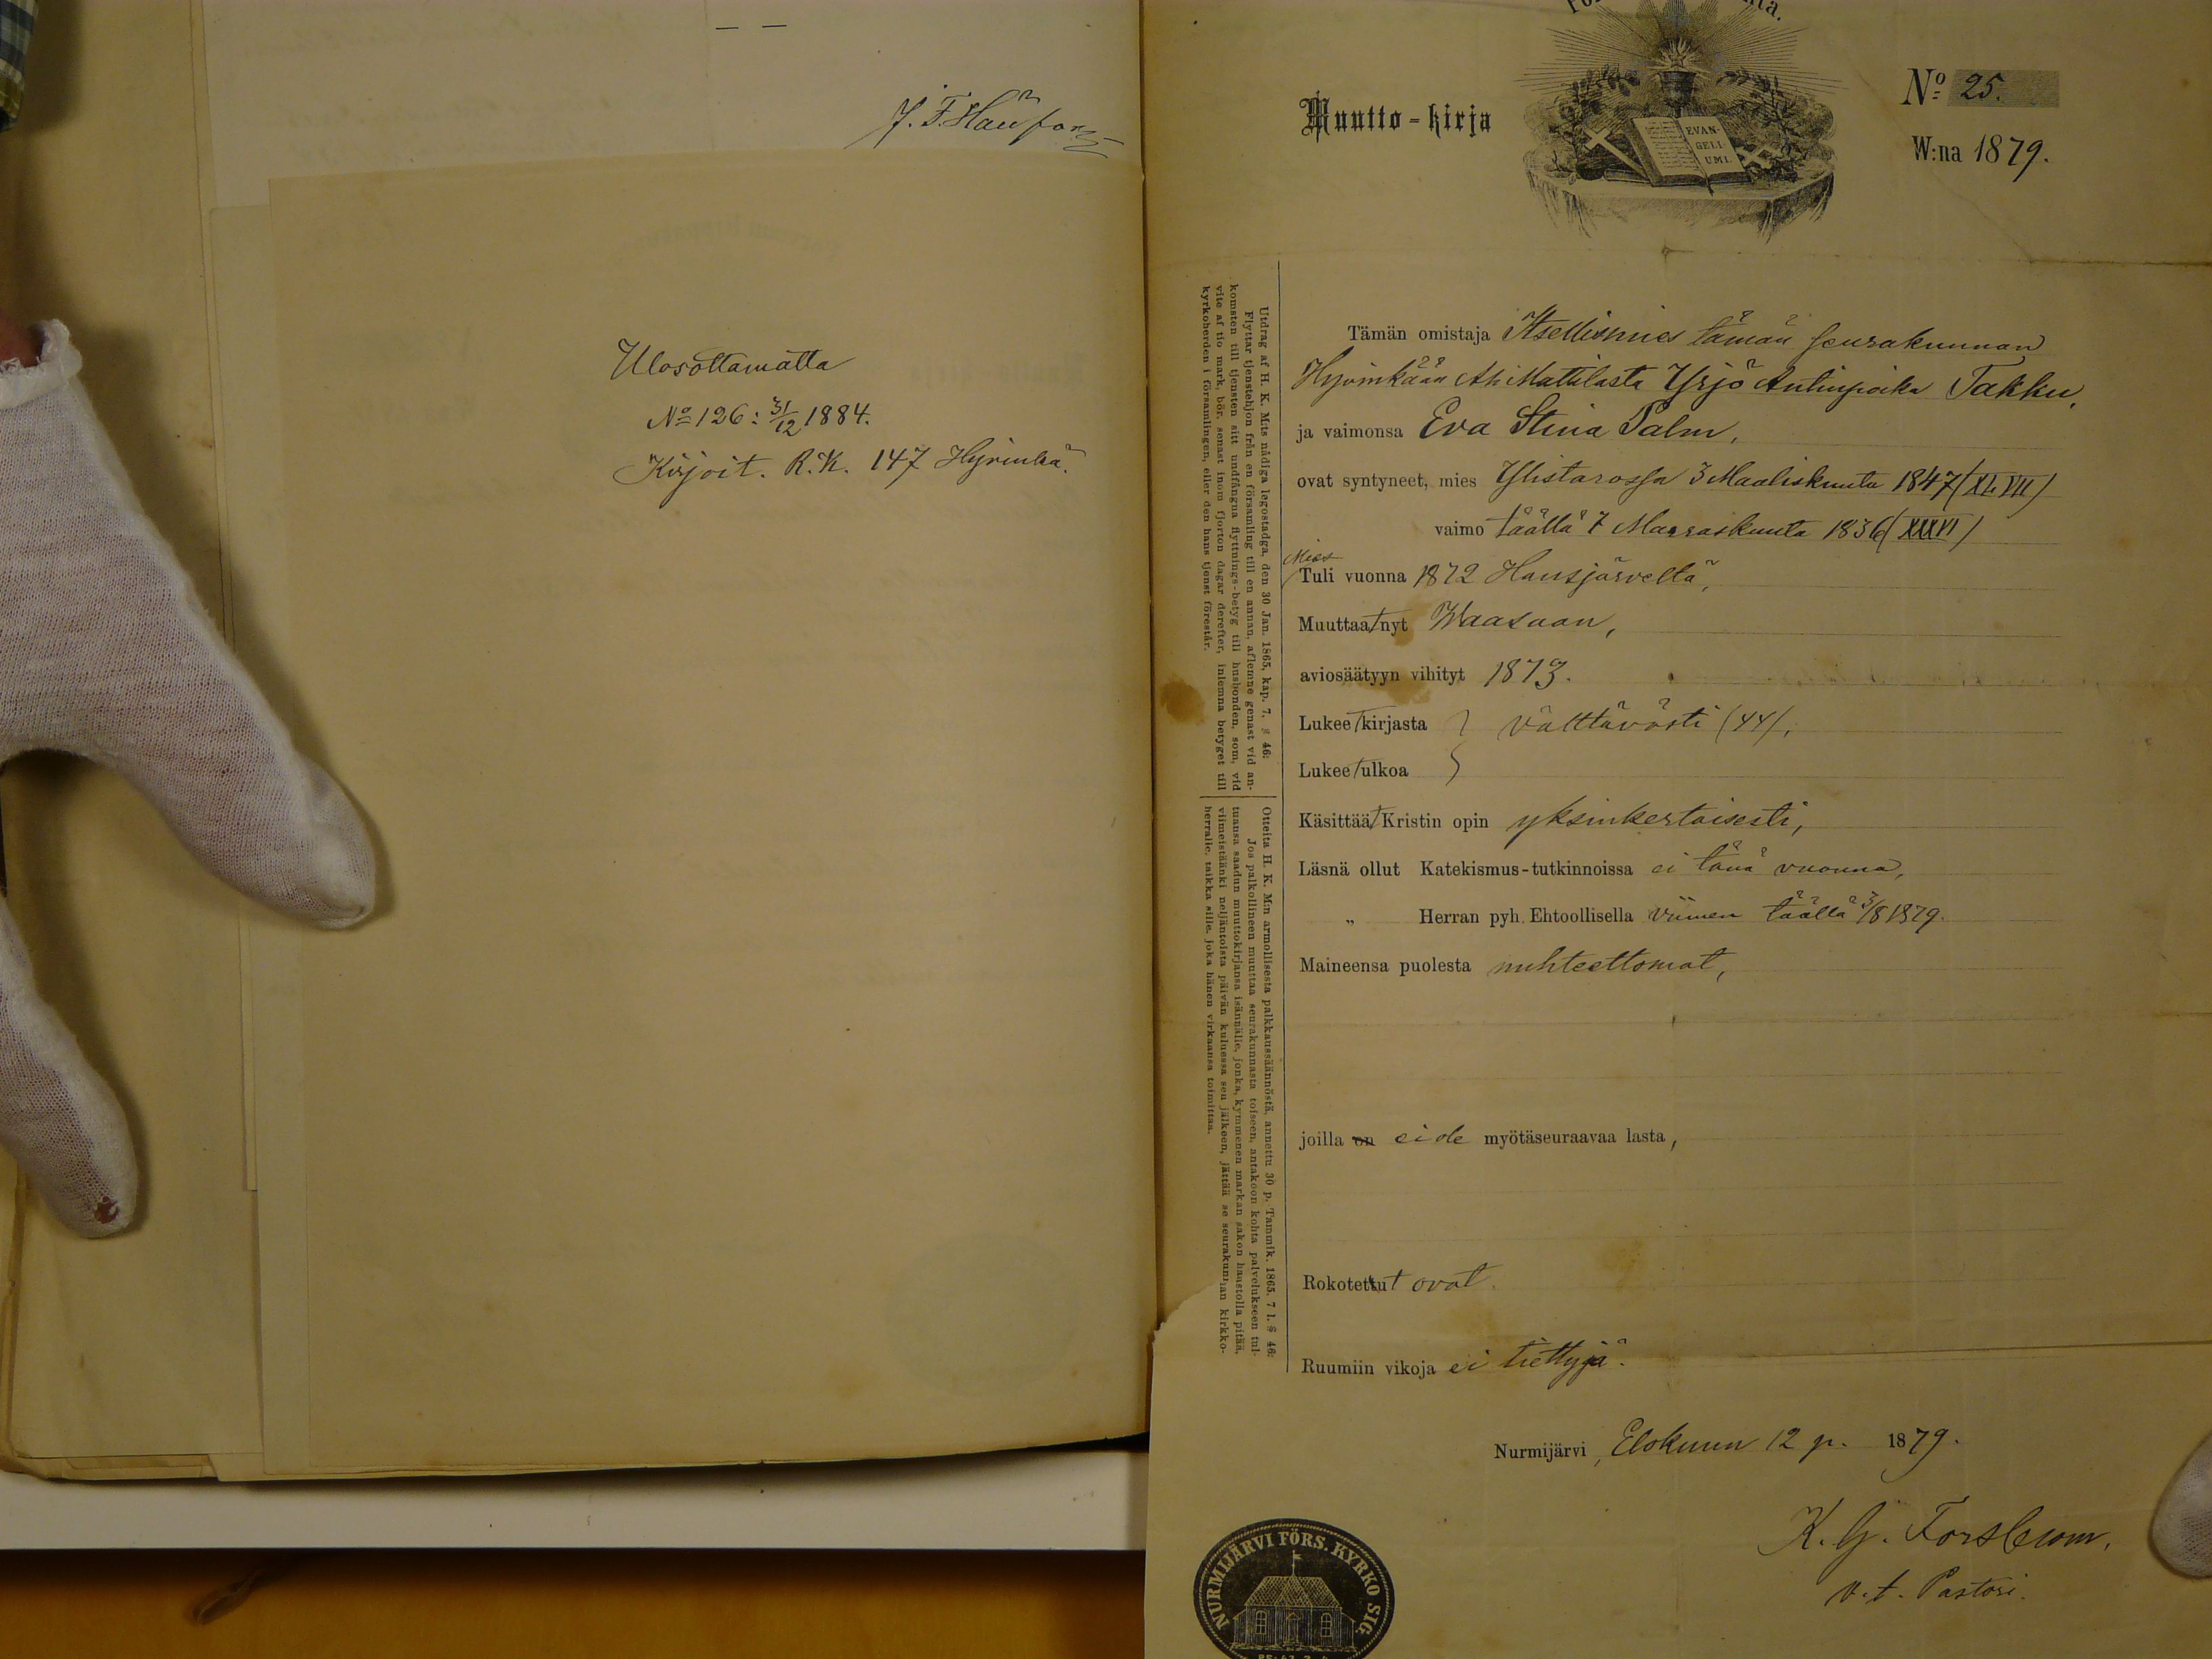 Ulosottamatta
No 126: 31/12 1884.
Kirjoit. R.K. 147 Hyvinkä.
Muutto-kirja
EVAN-
GELI-
UMI.
No 25.
W:na 1879.
Tämän omistaja Itsellismies tämän seurakunnan
Hyvinkään Ali Mattilasta Yrjö Antinpoika Takku,
ja vaimonsa Eva Stina Palm,
ovat syntyneet, mies Ylistarossa 3 Maaliskuuta 1847 (XLVII)
vaimo täällä 7 Marraskuuta 1836 (XXXVI)
Mies
Tuli vuonna 1872 Hausjärveltä,
Muuttaat nyt Waasaan,
aviosäätyyn vihityt 1873.
Lukeet kirjasta } välttävästi (44),
Lukeet ulkoa
Käsittäät Kristin opin yksinkertaisesti,
Läsnä ollut Katekismus-tutkinnoissa ei tänä vuonna,
„ Herran pyh. Ehtoollisella viimen täällä 3/8 1879.
Maineensa puolesta nuhteettomat,
joilla on ei ole myötäseuraavaa lasta,
Rokotettut ovat
Ruumiin vikoja ei tiettyjä.
Nurmijärvi, Elokuun 12 p. 1879.
K. G. Forsblom,
v.t. Pastori.
NURMIJÄRVI FÖRS. KYRKO SIG.
Utdrag af H. K. M:ts nådiga legostadga, den 30 Jan. 1865, kap. 7, § 46:
Flyttar tjenstehjon från en församling till en annan, aflemne genast vid an-
komsten till tjensten sitt undfångna flyttnings-betyg till husbonden, som, vid
vite af tio mark, bör, senast inom fjorton dagar derefter, inlemna betyget till
kyrkoherden i församlingen, eller den hans tjenst förestår.
Otteita H. K. M:n armollisesta palkkaussäännöstä, annettu 30 p. Tammik. 1865. 7 l. § 46:
Jos palkollineen muuttaa seurakunnasta toiseen, antakoon kohta palvelukseen tul-
tuansa saadun muuttokirjansa isännälle, jonka, kymmenen markan sakon haastolla pitää,
viimeistäänki neljäntoista päivän kuluessa sen jälkeen, jättää se seurakunnan kirkko-
herralle, taikka sille, joka hänen virkaansa toimittaa.